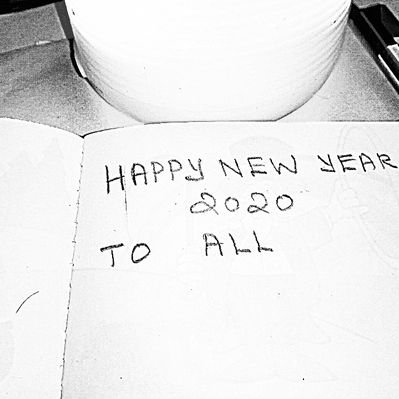 HAPPY NEW YEAR
2020
TO ALL